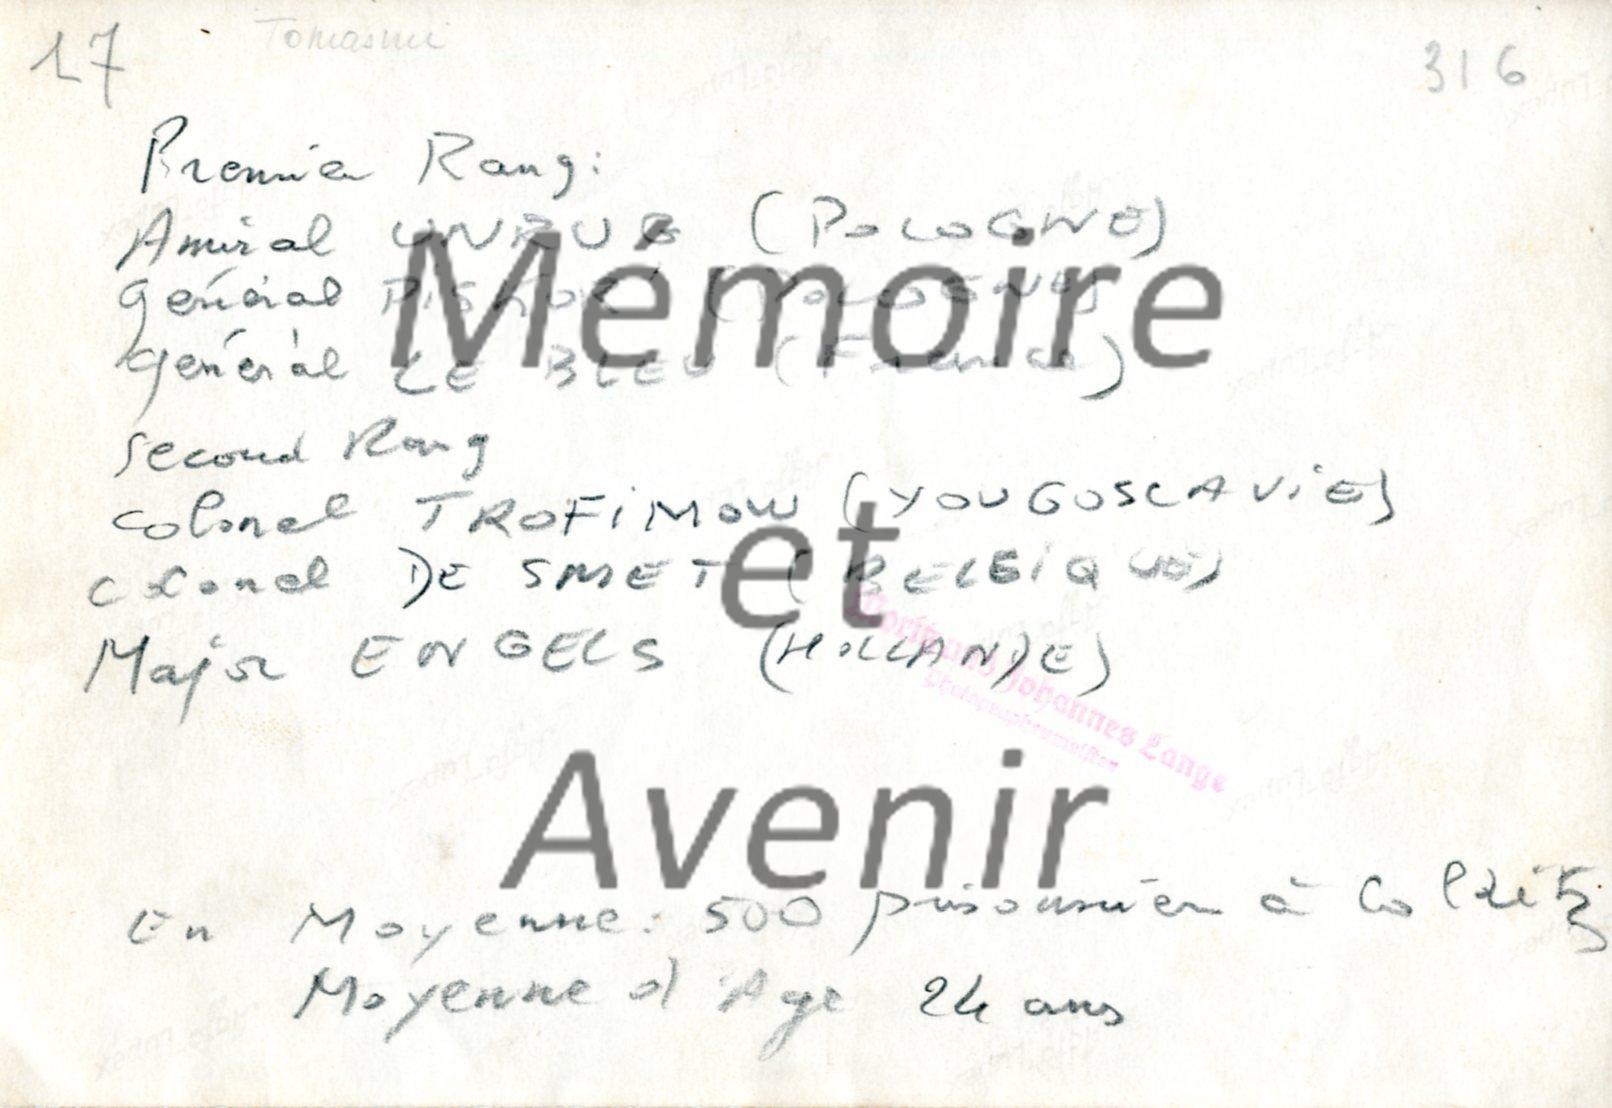 17
Tomasini
316
Premier Rang:
Amiral UNRUG (POLOGNE)
Général PISKOR (POLOGNE)
Général LE BLEU (France)
Second Rang
Colonel TROFIMOW (YOUGOSLAVIE)
Colonel DE SMET (BELGIQUE)
Major ENGELS (HOLLANDE)
Johannes Lange
Photographenmeister
En Moyenne: 500 prisonniers à Colditz
Moyenne d'Age 24 ans
Mémoire
et
Avenir